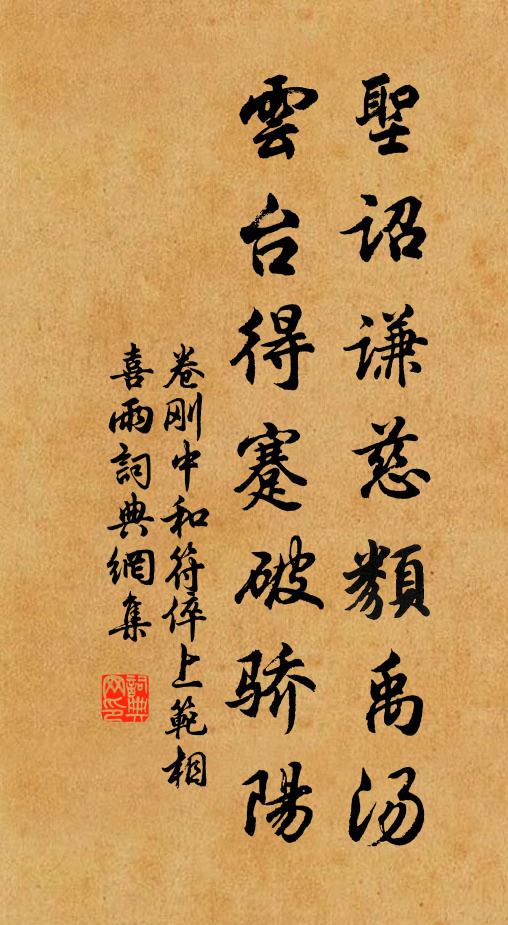 聖诏谦慈類禹汤
雲台得蹇破骄陽
卷刚中和符倅上範相
喜雨詞典網集
詞典网印